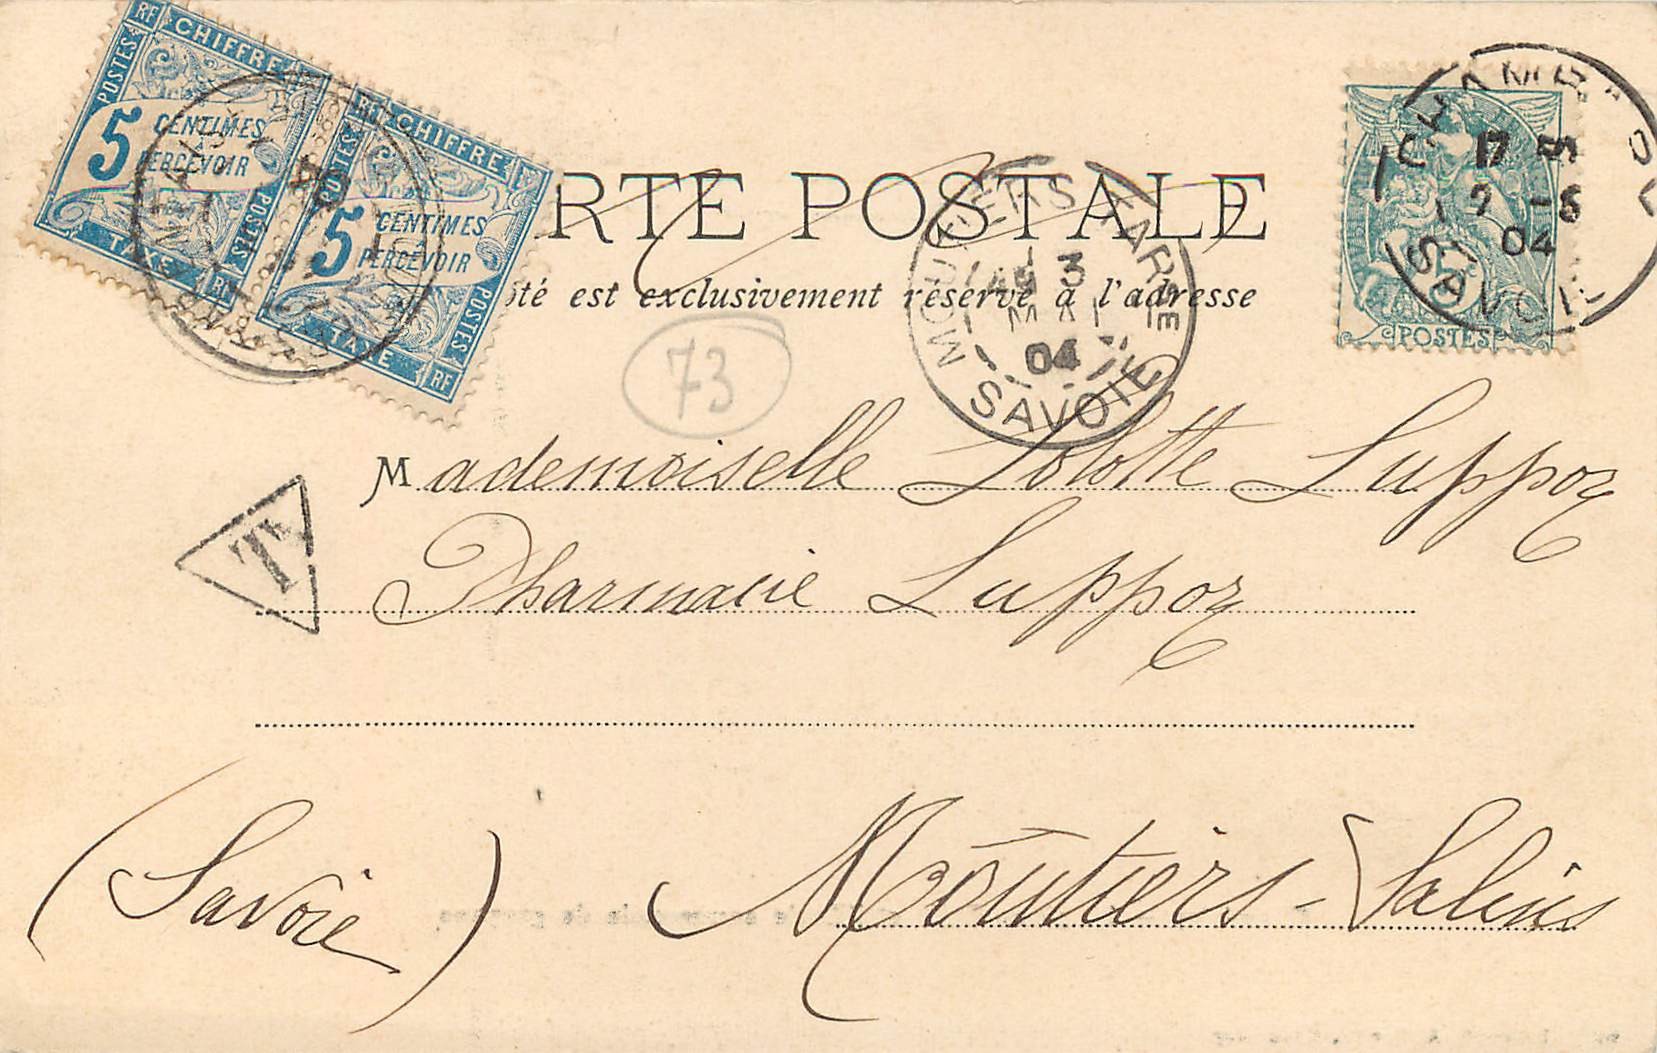 RF CHIFFRE
POSTES
5 CENTIMES
PERCEVOIR
POSTES
TAXE RF
RF CHIFFRE
POSTES
5 CENTIMES
PERCEVOIR
POSTES
TAXE RF
RTE POSTALE
ôté est exclusivement réservé à l'adresse
MOUTIERS TARENTAISE
3
MAI
04
SAVOIE
17
2 -5
04
SAVOIE
POSTES
73
T
Mademoiselle Lolotte Luppoz
Pharmacie Luppoz
Moûtiers-Salins
(Savoie)